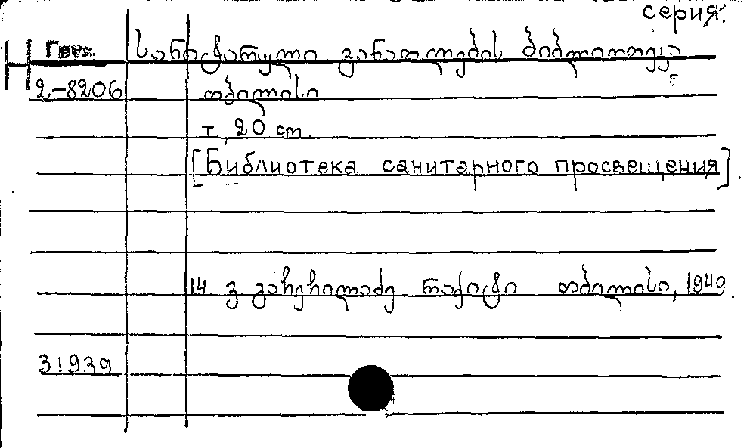 серия:
Н Груз. სანიტარული განათლების ბიბლიოთეკა
2-8206 თბილისი
т, 20 см.
[Библиотека санитарного просвещения]
14 გ რაქიტი თბილისი, 1940
31939